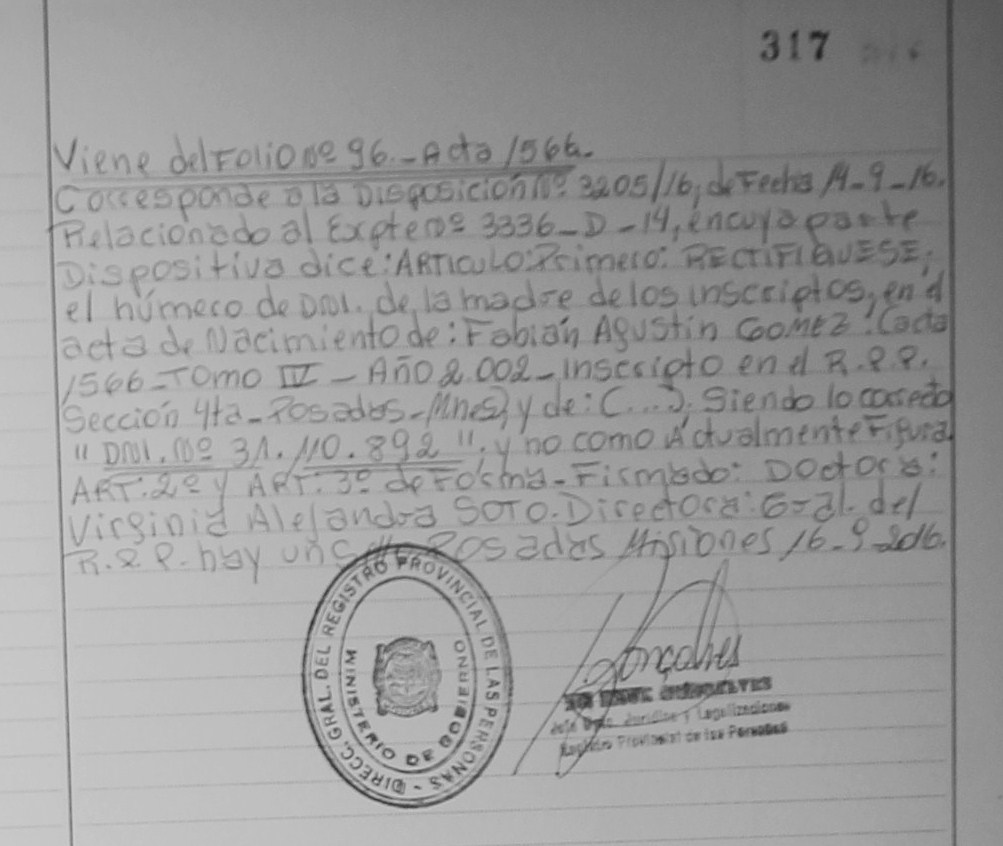 317
Viene del Folio Nº 96.-Acta 1566.-
Corresponde a la Disposición Nº. 3205/16, de Fecha 14-9-16.
Relacionado al Expte Nº 3336-D-14, en cuya parte
Dispositiva dice: ARTICULO: Primero: RECTIFIQUESE,
el número de DNI. de la madre de los inscriptos, en el
acta de Nacimiento de: Fabián Agustín GOMEZ: (acta
1566-TOMO IV - AÑO 2.002-inscripto en el R.P.P.
Sección 4ta-Posadas-Mnes), y de: (...). Siendo lo correcto
" DNI. Nº 31.110.892 ", y no como Actualmente Figura.
ART: 2º y ART: 3º de Forma-Firmado: Doctora:
Virginia Alejandra SOTO. Directora: Gral. del
R.P.P. hay un Posadas Misiones 16-9-2016.
DIRECC. GRAL. DEL REGISTRO PROVINCIAL DE LAS PERSONAS -
MINISTERIO DE GOBIERNO
Gonçalves
GONÇALVES
Jefe Dpto. Jurídico y Legalizaciones
Registro Provincial de las Personas